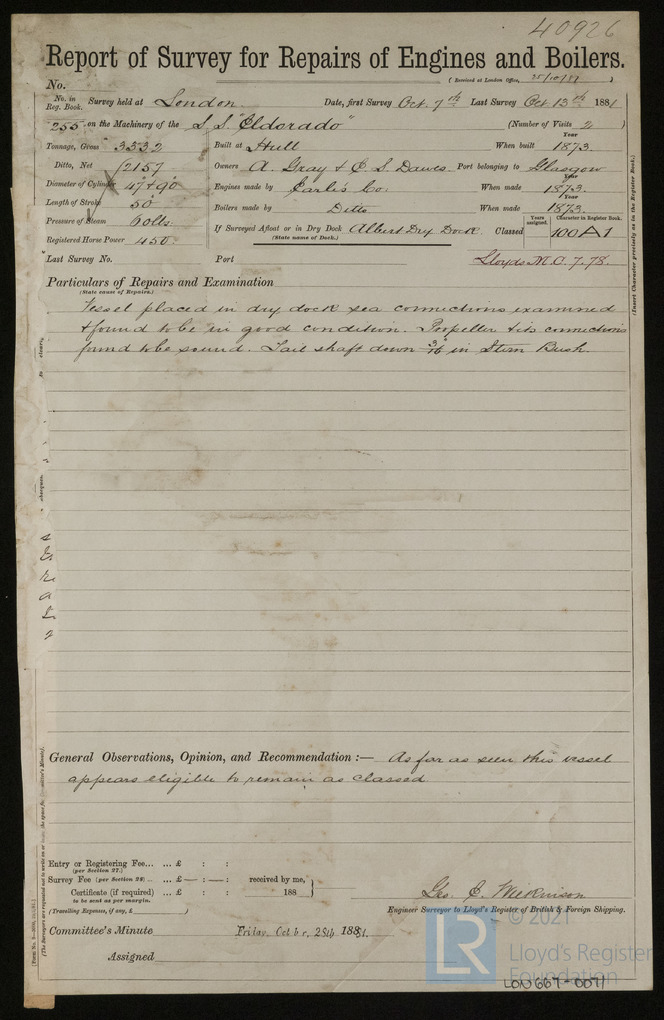 40926
Report of Survey for Repairs of Engines and Boilers.
No. (Received at London Office, 25/10/81 )
No. in Reg. Book. Survey held at London Date, first Survey Oct. 7th Last Survey Oct 13th 1881
255 on the Machinery of the S.S. "Eldorado" (Number of Visits 2 )
Tonnage, Gross 3532 Built at Hull When built Year 1873.
Ditto, Net 2157 Owners A. Gray & E S. Dawes. Port belonging to Glasgow
Diameter of Cylinder 47" + 90" Engines made by Earle's Co. When made Year 1873.
Length of Stroke 50 Boilers made by Ditto When made Year 1873.
Pressure of Steam 60 lbs If Surveyed Afloat or in Dry Dock Albert Dry Dock. Classed Years assigned. Character in Register Book. 100 A1
(State name of Dock.)
Registered Horse Power 450
Last Survey No. Port Lloyds M.C. 7.78.
Particulars of Repairs and Examination
(State cause of Repairs.)
Vessel placed in dry dock sea connections examined
& found to be in good condition. Propeller & its connections
found to be sound. Tail shaft down 3/16 in Stern Bush.
(Insert Character precisely as in the Register Book.)
General Observations, Opinion, and Recommendation :— As far as seen this vessel
appears eligible to remain as classed
Entry or Registering Fee... ... £ : :
(per Section 27.)
Survey Fee (per Section 28) .. ... £ — : — : received by me,
Certificate (if required) ... £ : : 188
to be sent as per margin.
(Travelling Expenses, if any, £ )
Geo. E. Wilkinson
Engineer Surveyor to Lloyd's Register of British & Foreign Shipping.
Committee's Minute Friday, Octbr. 28th 1881.
Assigned
© 2021
LR Lloyd's Register
Foundation
LON667-0071